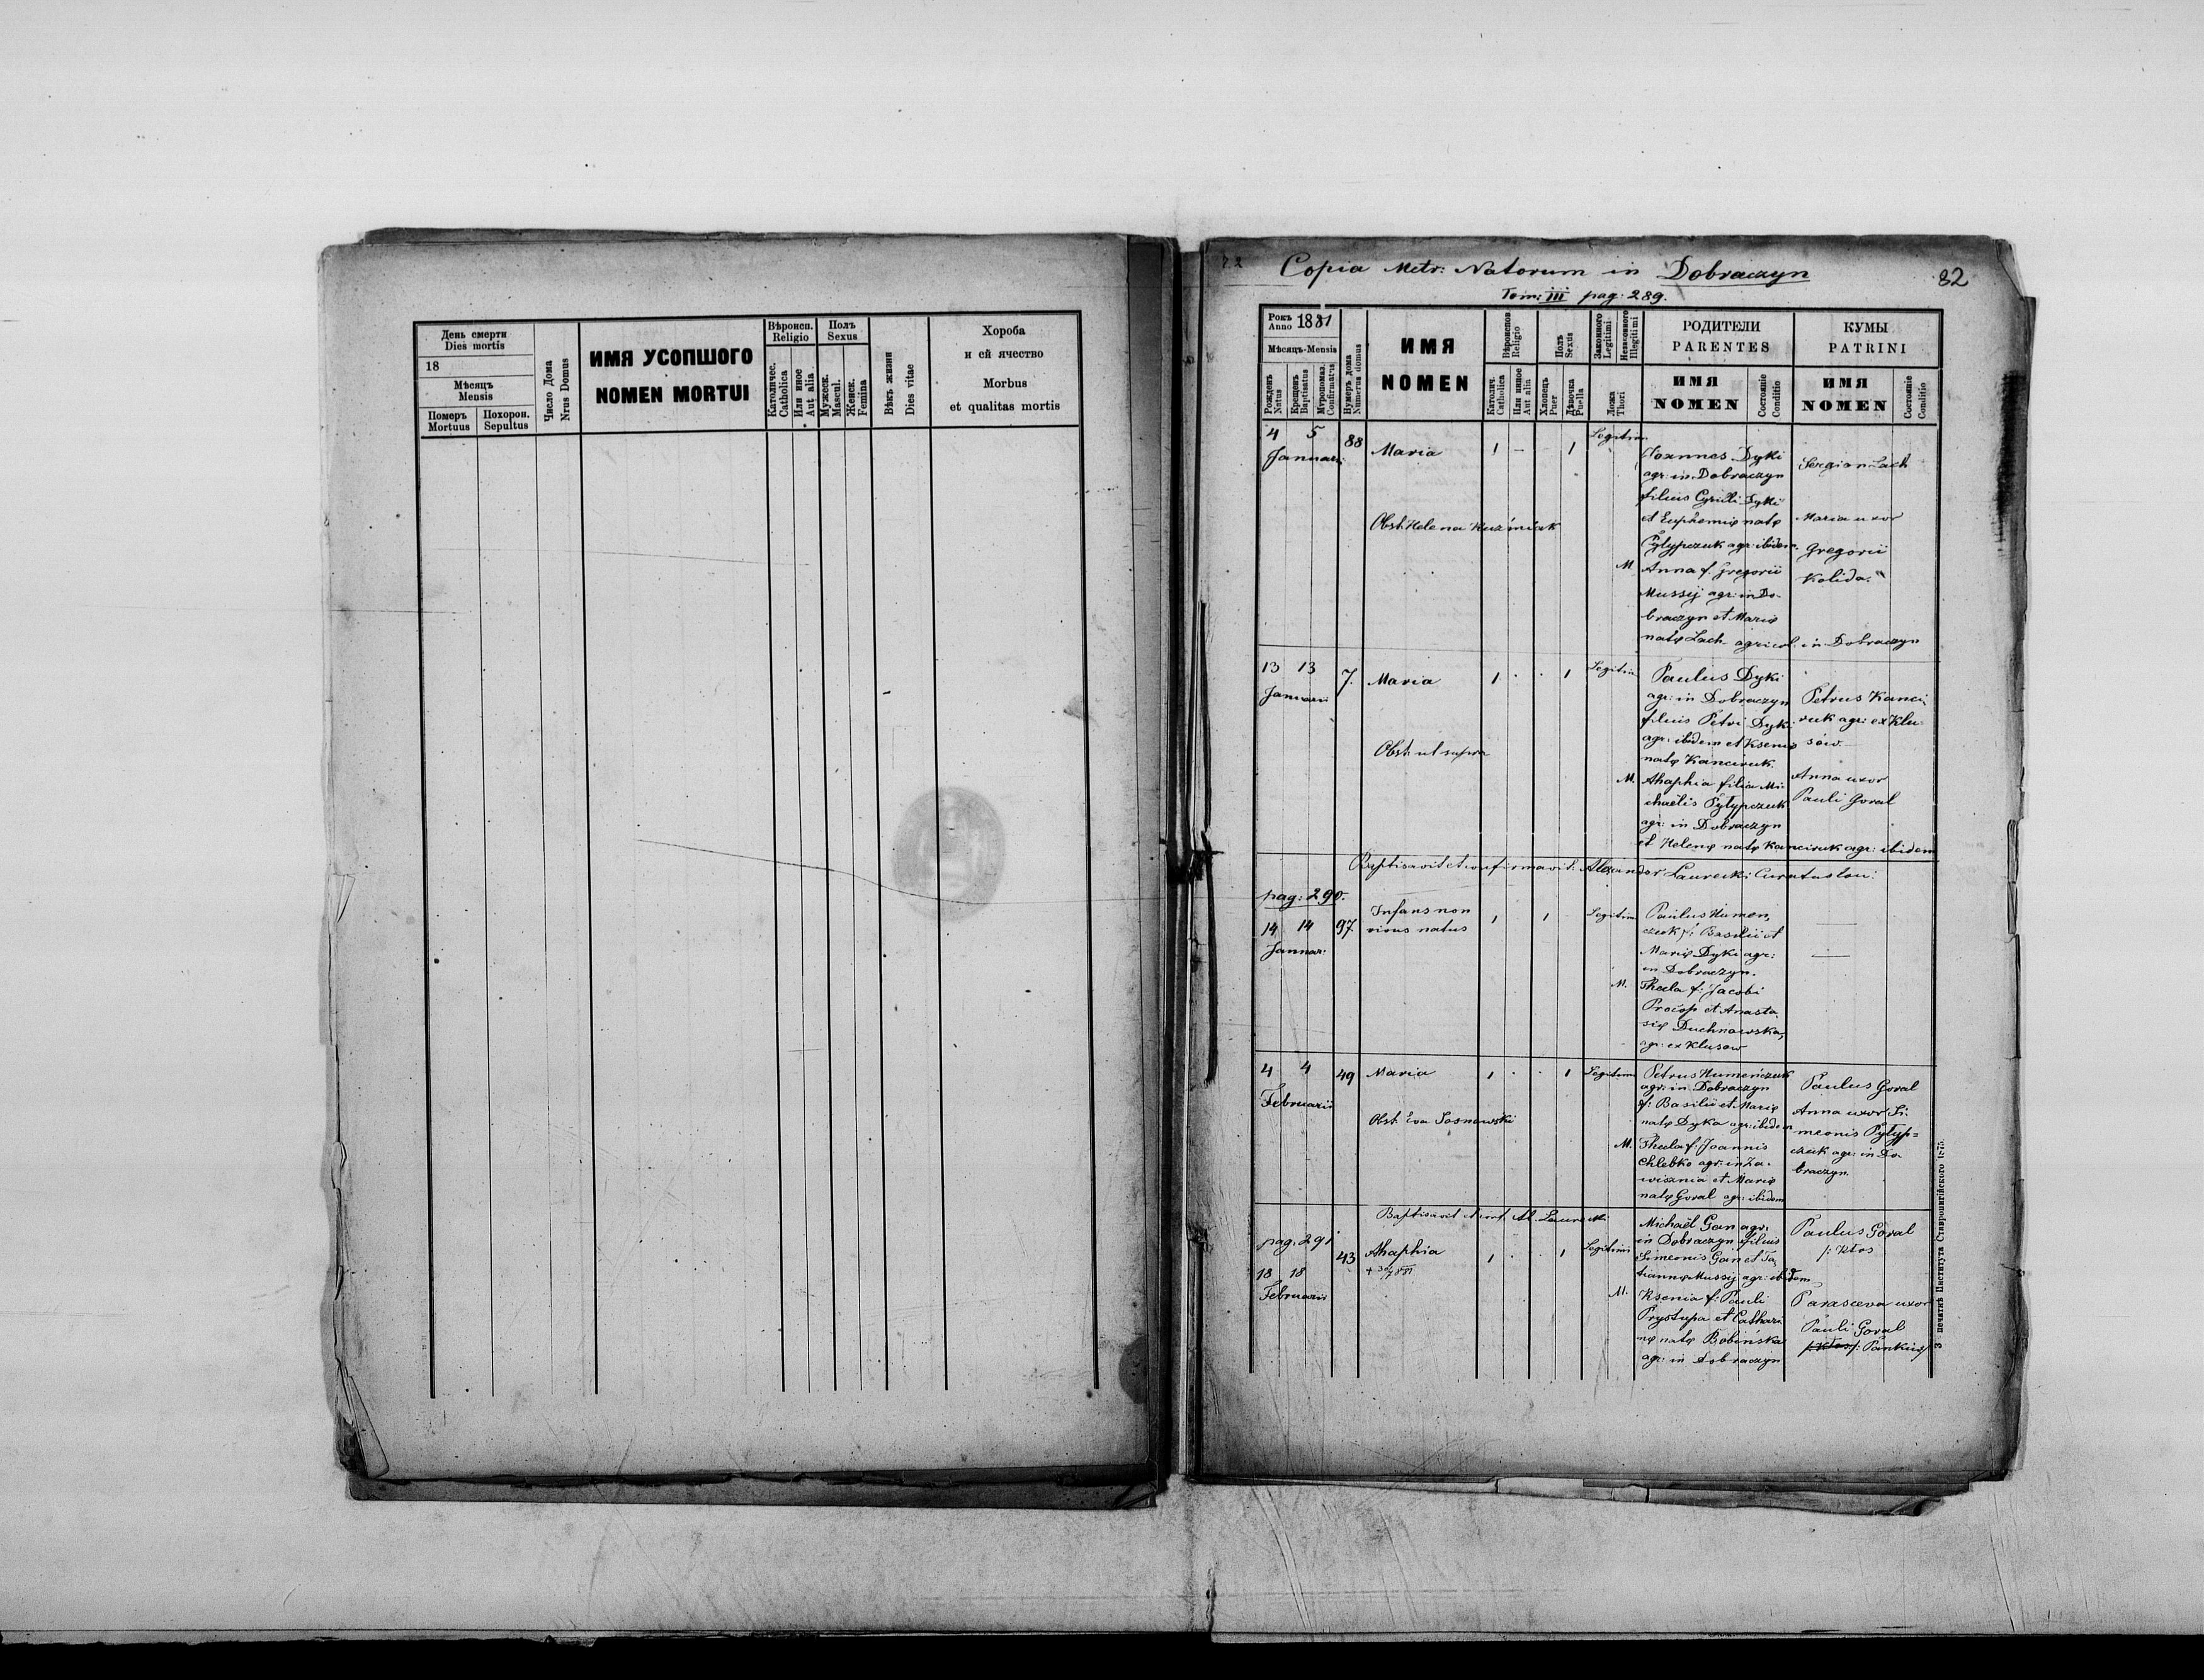 День смерти
Dies mortis
18
Мѣсяцъ
Mensis
Померъ
Mortuus
Похорон.
Sepultus
Число Дома
Nrus Domus
ИМЯ УСОПШОГО
NOMEN MORTUI
Вѣроисп.
Religio
Католичес.
Catholica
Или иное
Aut alia
Полъ
Sexus
Мужеск.
Mascul.
Женск.
Femina
Вѣкъ жизни
Dies vitae
Хороба
и ей ячество
Morbus
et qualitas mortis
Copia Metr: Natorum in Dobraczyn
82
Tom: III pag: 289.
Рокъ
Anno 1881
Мѣсяцъ-Mensis
Рожденъ
Natus
Крещенъ
Baptisatus
Мѵропомаз.
Confirmatus
Нумеръ дома
Numerus domus
ИМЯ
NOMEN
Вѣроиспов.
Religio
Католич.
Catholica
Или иное
Aut alia
Полъ
Sexus
Хлопецъ
Puer
Дѣвочка
Puella
Законного
Legitimi
Незаконного
Illegitimi
Ложа
Thori
РОДИТЕЛИ
PARENTES
ИМЯ
NOMEN
Состояніе
Conditio
КУМЫ
PATRINI
ИМЯ
NOMEN
Состояніе
Conditio
4 5 88 Maria 1 - 1 Legitim
Januarii
Obst. Helena Kuźmiak
Joannes Dyki
agr: in Dobraczyn
filius Cyrilli Dyki
et Euphemię natę
Pylypczuk agr: ibidem.
M. Anna f. Gregorii
Mussij agr: in Do-
braczyn et Marię
natę Lach agricol: in Dobraczyn
Sergian Lach
Maria uxor
Gregorii
Kolida.
13 13 7. Maria 1 . . 1 Legitim
Januarii
Obst. ut supra
Paulus Dyki
agr: in Dobraczyn
filius Petri Dyki
agr: ibidem et Ksenię
natę Kanciruk.
M. Ahaphia filia Mi-
chaëlis Pylypczuk
agr: in Dobraczyn
et Helenę natę Kanciruk agr: ibidem
Petrus Kanci-
ruk agr: ex Klu-
sów.
Anna uxor
Pauli Goral
Baptisavit et confirmavit: Alexander Laurecki Curatus loci:
pag: 290.
14 14 97. Infans non 1 1 Legitim
vivus natus
Januar:
Paulus Humen,
czuk f: Basilii et
Marię Dyki agr:
in Dobraczyn.
M. Thecla f: Jacobi
Procop et Anasta
się Duchnowska,
agr: ex Klusow
4 4 49 Maria 1 . . 1 Legitimi
Februarii
Obst. Eva Sosnowski
Petrus Humeńczuk
agr: in Dobraczyn
f: Basilii et Marię
natę Dyka agr: ibidem
M. Thecla f: Joannis
Chlebko agr: in Za-
wisznia et Marię
natę Goral agr: ibidem
Paulus Goral
Anna uxor Si-
meonis Pylyp=
czuk agr: in Do-
braczyn.
Baptisavit et conf. Al. Laurecki
pag. 291
18 18 43 Ahaphia 1 . . 1 Legitimi
Februarii
Michaël Gan agr:
in Dobraczyn filius
Simeonis Gan et Ta,
tiannę Mussij agr: ibidem
M. Ksenia f: Pauli
Prystupa et Cathari
nę natę Bobińska
agr: in Dobraczyn
Paulus Goral
/: Kłos
Parasceva uxor
Pauli Goral
/: Kłos /: Pankiw/
З печатнѣ Института Ставропигійского 1875.